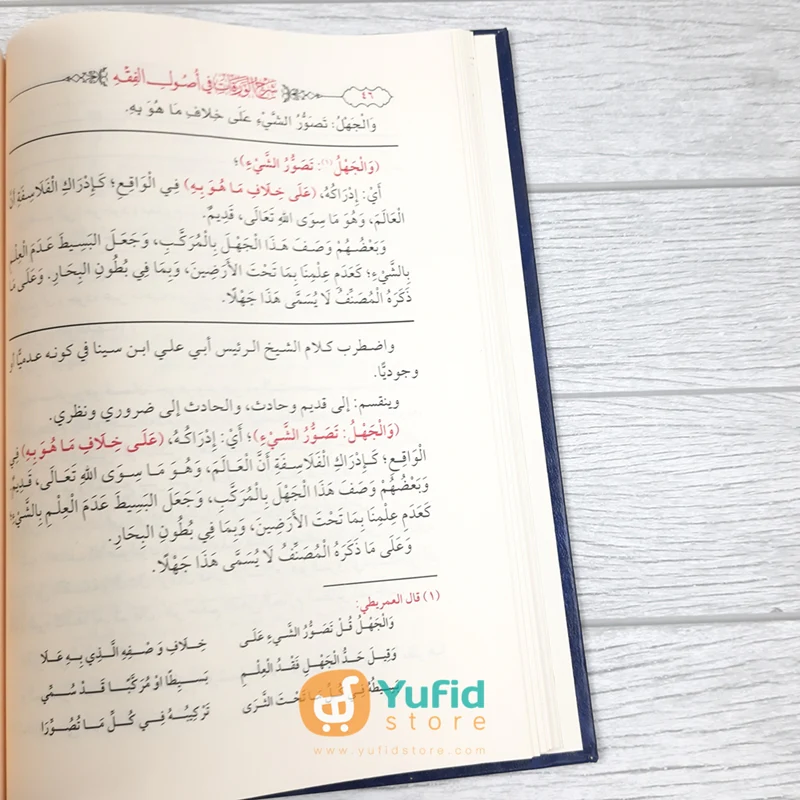 ٤٦ شرح الورقات في أصول الفقه
وَالْجَهْلُ: تَصَوُّرُ الشَّيْءِ عَلَى خِلَافِ مَا هُوَ بِهِ.
(وَالْجَهْلُ (١): تَصَوُّرُ الشَّيْءِ)؛
أَيْ: إِدْرَاكُهُ، (عَلَى خِلَافِ مَا هُوَ بِهِ) فِي الْوَاقِعِ؛ كَإِدْرَاكِ الْفَلَاسِفَةِ أَنَّ
الْعَالَمَ، وَهُوَ مَا سِوَى اللهِ تَعَالَى، قَدِيمٌ.
وَبَعْضُهُمْ وَصَفَ هَذَا الْجَهْلَ بِالْمُرَكَّبِ، وَجَعَلَ الْبَسِيطَ عَدَمَ الْعِلْمِ
بِالشَّيْءِ؛ كَعَدَمِ عِلْمِنَا بِمَا تَحْتَ الأَرَضِينَ، وَبِمَا فِي بُطُونِ الْبِحَارِ. وَعَلَى مَا
ذَكَرَهُ الْمُصَنِّفُ لَا يُسَمَّى هَذَا جَهْلًا.
واضطرب كلام الشيخ الرئيس أبي علي ابن سينا في كونه عدميًّا أو
وجوديًّا.
وينقسم: إلى قديم وحادث، والحادث إلى ضروري ونظري.
(وَالْجَهْلُ: تَصَوُّرُ الشَّيْءِ)؛ أَيْ: إِدْرَاكُهُ، (عَلَى خِلَافِ مَا هُوَ بِهِ) فِي
الْوَاقِعِ؛ كَإِدْرَاكِ الْفَلَاسِفَةِ أَنَّ الْعَالَمَ، وَهُوَ مَا سِوَى اللهِ تَعَالَى، قَدِيمٌ
وَبَعْضُهُمْ وَصَفَ هَذَا الْجَهْلَ بِالْمُرَكَّبِ، وَجَعَلَ الْبَسِيطَ عَدَمَ الْعِلْمِ بِالشَّيْءِ؛
كَعَدَمِ عِلْمِنَا بِمَا تَحْتَ الأَرَضِينَ، وَبِمَا فِي بُطُونِ الْبِحَارِ.
وَعَلَى مَا ذَكَرَهُ الْمُصَنِّفُ لَا يُسَمَّى هَذَا جَهْلًا.
(١) قال العمريطي:
وَالْجَهْلُ قُلْ تَصَوُّرُ الشَّيْءِ عَلَى خِلَافِ وَصْفِهِ الَّذِي بِهِ عَلَا
وَقِيلَ حَدُّ الْجَهْلِ فَقْدُ الْعِلْمِ بَسِيطًا اوْ مُرَكَّبًا قَدْ سُمِّي
تَحْتَ الثَّرَى تَرْكِيبُهُ فِي كُلِّ مَا تُصُوِّرَا
Yufid
store
www.yufidstore.com